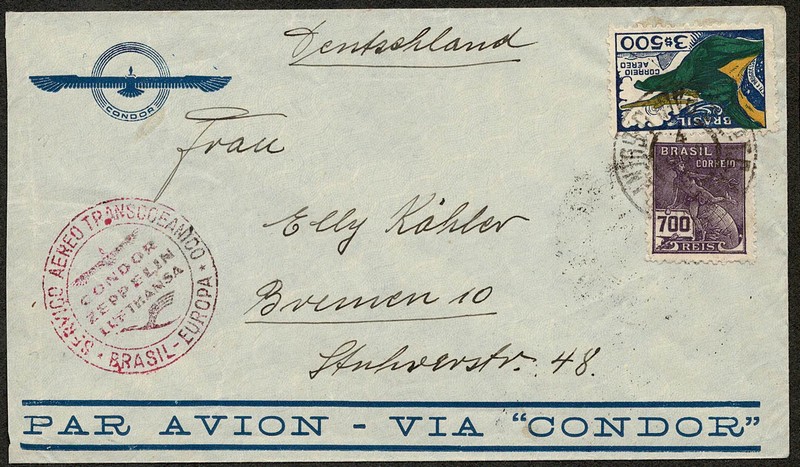 Deutschland
CONDOR
3$500
CORREIO
AEREO
BRASIL
BRASIL
CORREIO
700
REIS
Frau
Elly Köhler
Bremen 10
Stuhrerstr. 48.
SERVIÇO AEREO TRANSCOEANICO
CONDOR
ZEPPELIN
LUFTHANSA
BRASIL-EUROPA
PAR AVION - VIA "CONDOR"